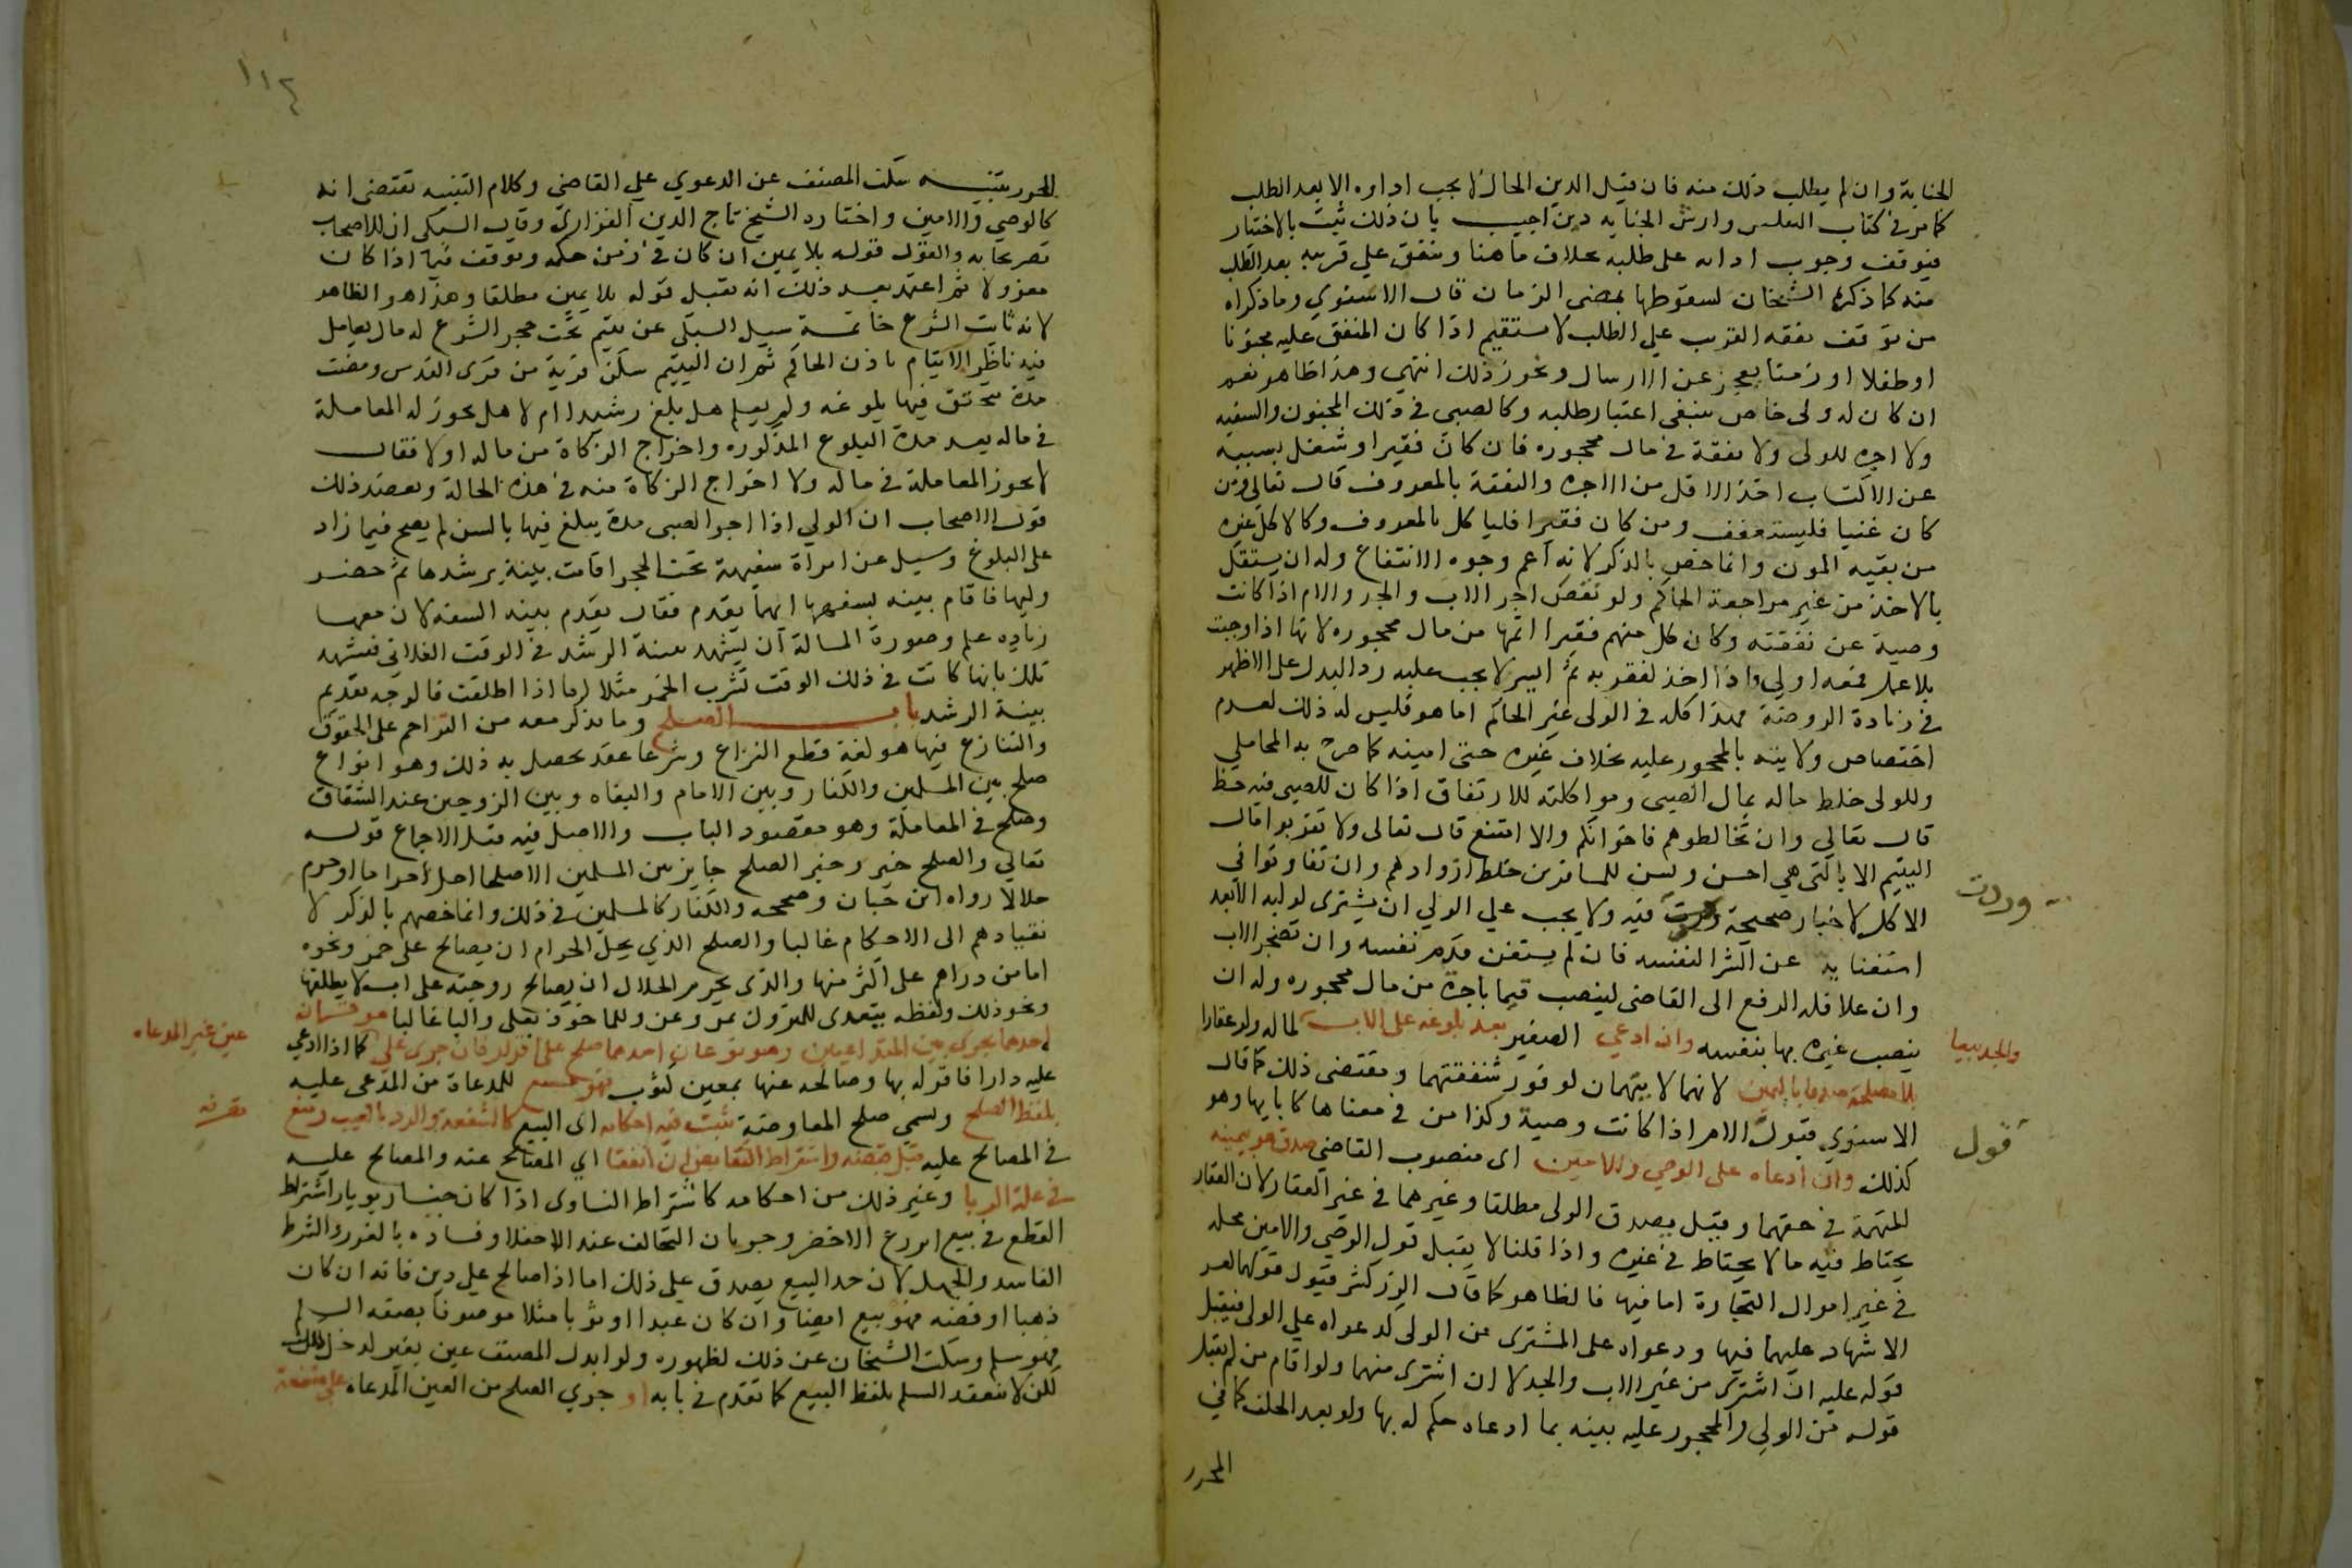 الجناية وان لم يطلب ذلك منه فان قيل الدين الحال لا يجب اداوه الا بعد الطلب
كما مر في كتاب الفلس وارش الجنايه دين اجيب بان ذلك ثبت بالاختيار
فتوقف وجوب ادائه على طلبه بخلاف ما هنا وينفق علي قريبه بعد الطلب
منه كما ذكره الشيخان لسقوطها بمضي الزمان قال الاسنوي وما ذكراه
من توقف نفقه القريب علي الطلب لا يستقيم اذا كان المنفق عليه مجنونا
او طفلا او زمنا يعجز عن الارسال ونحو ذلك انتهي وهذا ظاهر نعم
ان كان له ولى خاص ينبغى اعتبار طلبه وكالصبى في ذلك المجنون والسفيه
ولا اجره للولى ولا نفقة في مال محجوره فان كان فقيرا وشغل بسببه
عن الاكتساب اخذ الاقل من الاجره والنفقة بالمعروف قال تعالى ومن
كان غنيا فليستعفف ومن كان فقيرا فلياكل بالمعروف وكالاكل غيره
من بقيه المون وانما خص بالذكر لانه اعم وجوه الانتفاع وله ان يستقل
بالاخذ من غير مراجعة الحاكم ولو نقص اجر الاب والجد والام اذا كانت
وصية عن نفقته وكان كل منهم فقيرا اتمها من مال محجوره لانها اذا وجبت
بلا عمل فمعه اولي واذا اخذ لفقره ثم ايسر لا يجب عليه رد البدل على الاظهر
في زيادة الروضة هذا كله في الولى غير الحاكم اما هو فليس له ذلك لعدم
اختصاص ولايته بالمحجور عليه بخلاف غيره حتى امينه كما صرح به المحاملي
وللولى خلط ماله بمال الصبى ومواكلته للارتفاق اذا كان للصبى فيه حظ
قال تعالي وان تخالطوهم فاخوانكم والا امتنع قال تعالى ولا تقربوا مال
اليتيم الا بالتى هي احسن ويسن للمسافرين خلط ازوادهم وان تفاوتوا في
الاكل لاخبار صحيحة وردت فيه ولا يجب علي الولي ان يشترى لوليه الا بعد
استغنايه عن الشرا لنفسه فان لم يستغن قدم نفسه وان تضجر الاب
وان علا فله الرفع الى القاضى لينصب قيما باجرة من مال محجوره وله ان
ينصب غيره بها بنفسه وان ادعي الصغير بعد بلوغه على الاب والجد بيعا لماله ولو عقارا
بلا مصلحة صدقا باليمين لانهما لا يتهمان لوفور شفقتهما ومقتضى ذلك كما قال
الاسنوي قبول قول الام اذا كانت وصية وكذا من في معناها كابايها وهو
كذلك وان ادعاه على الوصي والامين اى منصوب القاضي صدق هو بيمينه
للتهمة في حقهما وقيل يصدق الولى مطلقا وغيرهما في غير العقار لان العقار
يحتاط فيه ما لا يحتاط في غيره واذا قلنا لا يقبل قول الوصي والامين محله
في غير اموال التجارة اما فيها فالظاهر كما قال الزركشي قبول قولهما لعسر
الاشهاد عليهما فيها ودعواه على المشترى من الولى كدعواه علي الولى فيقبل
قوله عليه ان اشترى من غير الاب والجد لا ان اشترى منهما ولو اقام من لم يقبل
قوله من الولي والمحجور عليه بينه بما ادعاه حكم له بها ولو بعد الحلف كما في
المحرر
وردت
والجد بيعا
قول
المحرر تنبيه سكت المصنف عن الدعوي علي القاضي وكلام التنبيه يقتضى انه
كالوصي والامين واختاره الشيخ تاج الدين الفزاري وقال السبكي ان للاصحاب
تصريحا به والقول قوله بلا يمين ان كان في زمن حكمه وتوقف فيما اذا كان
معزولا ثم اعتمد بعد ذلك انه يقبل قوله بلا يمين مطلقا وهذا هو الظاهر
لانه نائب الشرع خاتمة سيل السبكي عن يتيم تحت حجر الشرع له مال يعامل
فيه ناظر الايتام باذن الحاكم ثم ان اليتيم سكن قرية من قرى القدس ومضت
مدة تحقق فيها بلوغه ولم يعلم هل بلغ رشيدا ام لا هل يجوز له المعاملة
في ماله بعد مدة البلوغ المذكوره واخراج الزكاة من ماله اولا فقال
لا يجوز المعاملة في ماله ولا اخراج الزكاة منه في هذه الحالة ويعضد ذلك
قول الاصحاب ان الولي اذا اجر الصبى مدة يبلغ فيها بالسن لم يصح فيما زاد
على البلوغ وسيل عن امراة سفيهة تحت الحجر اقامت بينة برشدها ثم حضر
وليها فاقام بينه بسفهها ايهما يقدم فقال يقدم بينه السفه لان معها
زياده علم وصورة المسالة ان يشهد بينة الرشد في الوقت الفلاني فتشهد
تلك بانها كانت في ذلك الوقت تشرب الخمر مثلا اما اذا اطلقت فالوجه تقديم
بينة الرشد باب الصلح وما يذكر معه من التزاحم على الحقوق
والتنازع فيها هو لغة قطع النزاع وشرعا عقد يحصل به ذلك وهو انواع
صلح بين المسلمين والكفار وبين الامام والبغاه وبين الزوجين عند الشقاق
وصلح في المعاملة وهو مقصود الباب والاصل فيه قبل الاجماع قوله
تعالي والصلح خير وخبر الصلح جايز بين المسلمين الا صلحا احل حراما او حرم
حلالا رواه ابن حبان وصححه والكفار كالمسلمين في ذلك وانما خصهم بالذكر لا
نقيادهم الى الاحكام غالبا والصلح الذي يحل الحرام ان يصالح على خمر ونحوه
اما من دراهم على اكثر منها والذى يحرم الحلال ان يصالح زوجته على ان لا يطلقها
ونحو ذلك ولفظه يتعدى للمتروك بمن وعن وللماخوذ بعلى والبا غالبا هو قسمان
احدهما يجرى بين المتداعيين وهو نوعان احدهما صلح على اقرار فان جرى على عين غير المدعاه كما اذا ادعي
عليه دارا فاقر له بها وصالحه عنها بمعين كثوب فهو بيع للمدعاة من المدعى عليه
بلفظ الصلح ويسمي صلح المعاوضة تثبت فيه احكامه اى البيع كالشفعة والرد بالعيب ومنع تصرفه
في المصالح عليه قبل قبضه واشتراط التقابض ان اتفقا اي المصالح عنه والمصالح عليه
في علة الربا وغير ذلك من احكامه كاشتراط التساوى اذا كان جنسا ربويا واشتراط
القطع في بيع الزرع الاخضر وجريان التحالف عند الاختلاف وفساده بالغرر والشرط
الفاسد والجهل لان حد البيع يصدق علي ذلك اما اذا صالح علي دين فانه ان كان
ذهبا او فضة فهو بيع ايضا وان كان عبدا او ثوبا مثلا موصوفا بصفة السلم
فهو سلم وسكت الشيخان عن ذلك لظهوره ولو ابدل المصنف عين بغير لدخل ذلك
لكن لا ينعقد السلم بلفظ البيع كما تقدم في بابه او جري الصلح من العين المدعاه على منفعة
عين غير المدعاه
تصرفه
١١٤